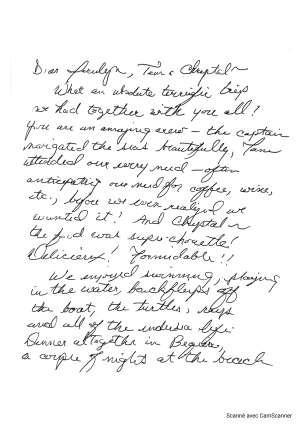 Dear Jocelyn, Tam & Chrystal ~
What an absolute terrific trip
we had together with you all!
You are an amazing crew - the captain
navigated the seas beautifully, Tam
attended our every need - often
anticipating our need for coffee, wine,
etc., before we even realized we
wanted it! And Chrystal ~
the food was super-chouette!
Délicieux! Formidable!!
We enjoyed swimming, playing
in the water, backflips off
the boat, the turtles, rays
and all of the undersea life.
Dinner altogether in Bequia,
a couple of nights at the beach
Scanné avec CamScanner